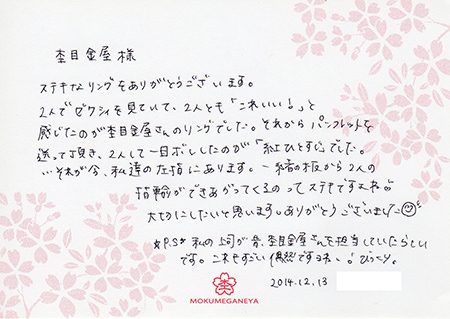 杢目金屋 様
ステキなリングをありがとうございます。
2人でゼクシィを見ていて、2人とも「これいい!」と
感じたのが杢目金屋さんのリングでした。それからパンフレットを
送って頂き、2人して一目ボレしたのが「紅ひとすじ」でした。
…それが今、私達の左指にあります。一緒の板から2人の
指輪ができあがってくるのってステキですよね。
大切にしたいと思います。ありがとうございました
*P.S* 私の上司が昔、杢目金屋さんを担当していたらしい
です。これもすごい偶然ですヨネ。! びっくり。
2014.12.13
MOKUMEGANEYA